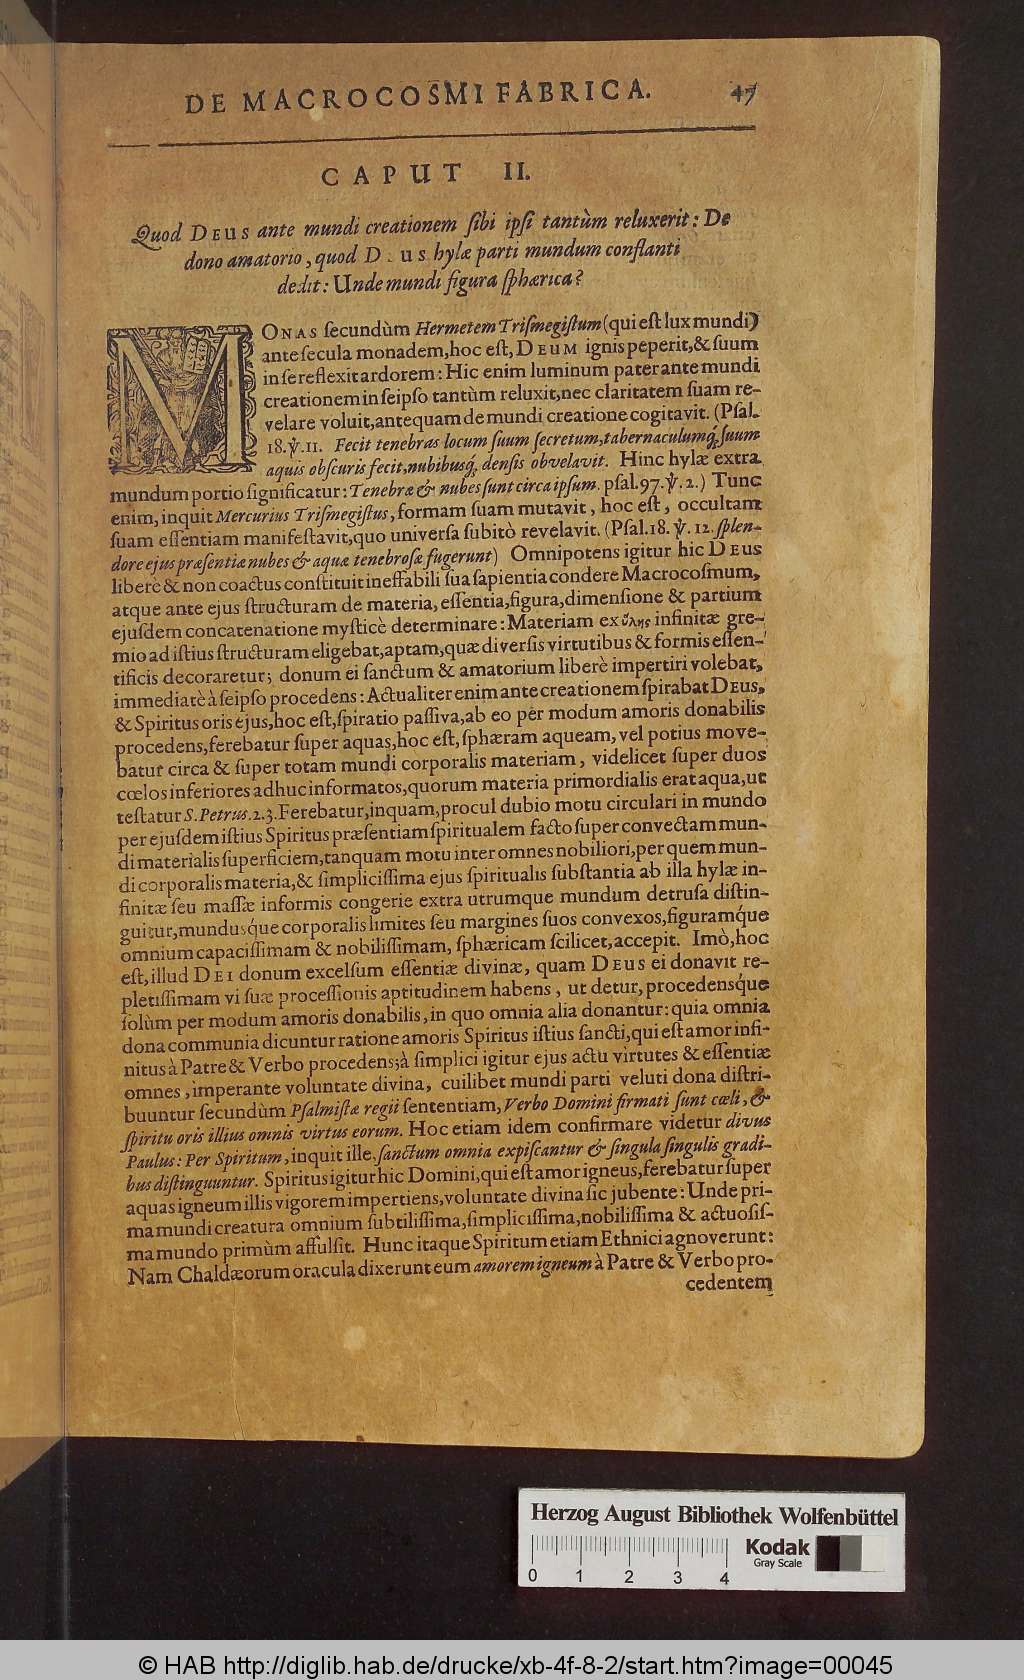 DE MACROCOSMI FABRICA. 47
CAPUT II.
Quod DEUS ante mundi creationem ſibi ipſi tantùm reluxerit: De
dono amatorio, quod D us hylæ parti mundum conflanti
dedit: Unde mundi figura ſphærica?
MONAS ſecundùm Hermetem Triſmegiſtum (qui eſt lux mundi)
ante ſecula monadem, hoc eſt, DEUM ignis peperit, & ſuum
in ſe reflexit ardorem: Hic enim luminum pater ante mundi
creationem in ſeipſo tantùm reluxit, nec claritatem ſuam re-
velare voluit, antequam de mundi creatione cogitavit. (Pſal.
18. ℣. 11. Fecit tenebras locum ſuum ſecretum, tabernaculumq́; ſuum
aquis obſcuris fecit, nubibusq́; denſis obvelavit. Hinc hylæ extra
mundum portio ſignificatur: Tenebræ & nubes ſunt circa ipſum. pſal. 97. ℣. 2.) Tunc
enim, inquit Mercurius Triſmegiſtus, formam ſuam mutavit, hoc eſt, occultam
ſuam eſſentiam manifeſtavit, quo univerſa ſubitò revelavit. (Pſal. 18. ℣. 12. ſplen-
dore ejus præſentiæ nubes & aquæ tenebroſæ fugerunt) Omnipotens igitur hic DEUS
liberè & non coactus conſtituit ineffabili ſua ſapientia condere Macrocoſmum,
atque ante ejus ſtructuram de materia, eſſentia, figura, dimenſione & partium
ejuſdem concatenatione myſticè determinare: Materiam ex ὕλης infinitæ gre-
mio ad iſtius ſtructuram eligebat, aptam, quæ diverſis virtutibus & formis eſſen-
tificis decoraretur; donum ei ſanctum & amatorium liberè impertiri volebat,
immediatè à ſeipſo procedens: Actualiter enim ante creationem ſpirabat DEUS,
& Spiritus oris ejus, hoc eſt, ſpiratio paſſiva, ab eo per modum amoris donabilis
procedens, ferebatur ſuper aquas, hoc eſt, ſphæram aqueam, vel potius move-
batur circa & ſuper totam mundi corporalis materiam, videlicet ſuper duos
cœlos inferiores adhuc informatos, quorum materia primordialis erat aqua, ut
teſtatur S. Petrus. 2. 3. Ferebatur, inquam, procul dubio motu circulari in mundo
per ejuſdem iſtius Spiritus præſentiam ſpiritualem facto ſuper convectam mun-
di materialis ſuperficiem, tanquam motu inter omnes nobiliori, per quem mun-
di corporalis materia, & ſimpliciſſima ejus ſpiritualis ſubſtantia ab illa hylæ in-
finitæ ſeu maſſæ informis congerie extra utrumque mundum detruſa diſtin-
guitur, mundusq́ue corporalis limites ſeu margines ſuos convexos, figuramq́ue
omnium capaciſſimam & nobiliſſimam, ſphæricam ſcilicet, accepit. Imò, hoc
eſt, illud DEI donum excelſum eſſentiæ divinæ, quam DEUS ei donavit re-
pletiſſimam vi ſuæ proceſſionis aptitudinem habens, ut detur, procedensq́ue
ſolùm per modum amoris donabilis, in quo omnia alia donantur: quia omnia
dona communia dicuntur ratione amoris Spiritus iſtius ſancti, qui eſt amor infi-
nitus à Patre & Verbo procedens; à ſimplici igitur ejus actu virtutes & eſſentiæ
omnes, imperante voluntate divina, cuilibet mundi parti veluti dona diſtri-
buuntur ſecundùm Pſalmiſtæ regii ſententiam, Verbo Domini firmati ſunt cœli, &
ſpiritu oris illius omnis virtus eorum. Hoc etiam idem confirmare videtur divus
Paulus: Per Spiritum, inquit ille, ſanctum omnia expiſcantur & ſingula ſingulis gradi-
bus diſtinguuntur. Spiritus igitur hic Domini, qui eſt amor igneus, ferebatur ſuper
aquas igneum illis vigorem impertiens, voluntate divina ſic jubente: Unde pri-
ma mundi creatura omnium ſubtiliſſima, ſimpliciſſima, nobiliſſima & actuoſiſ-
ma mundo primùm affulſit. Hunc itaque Spiritum etiam Ethnici agnoverunt:
Nam Chaldæorum oracula dixerunt eum amorem igneum à Patre & Verbo pro-
cedentem
Herzog August Bibliothek Wolfenbüttel
Kodak
Gray Scale
0 1 2 3 4
© HAB http://diglib.hab.de/drucke/xb-4f-8-2/start.htm?image=00045